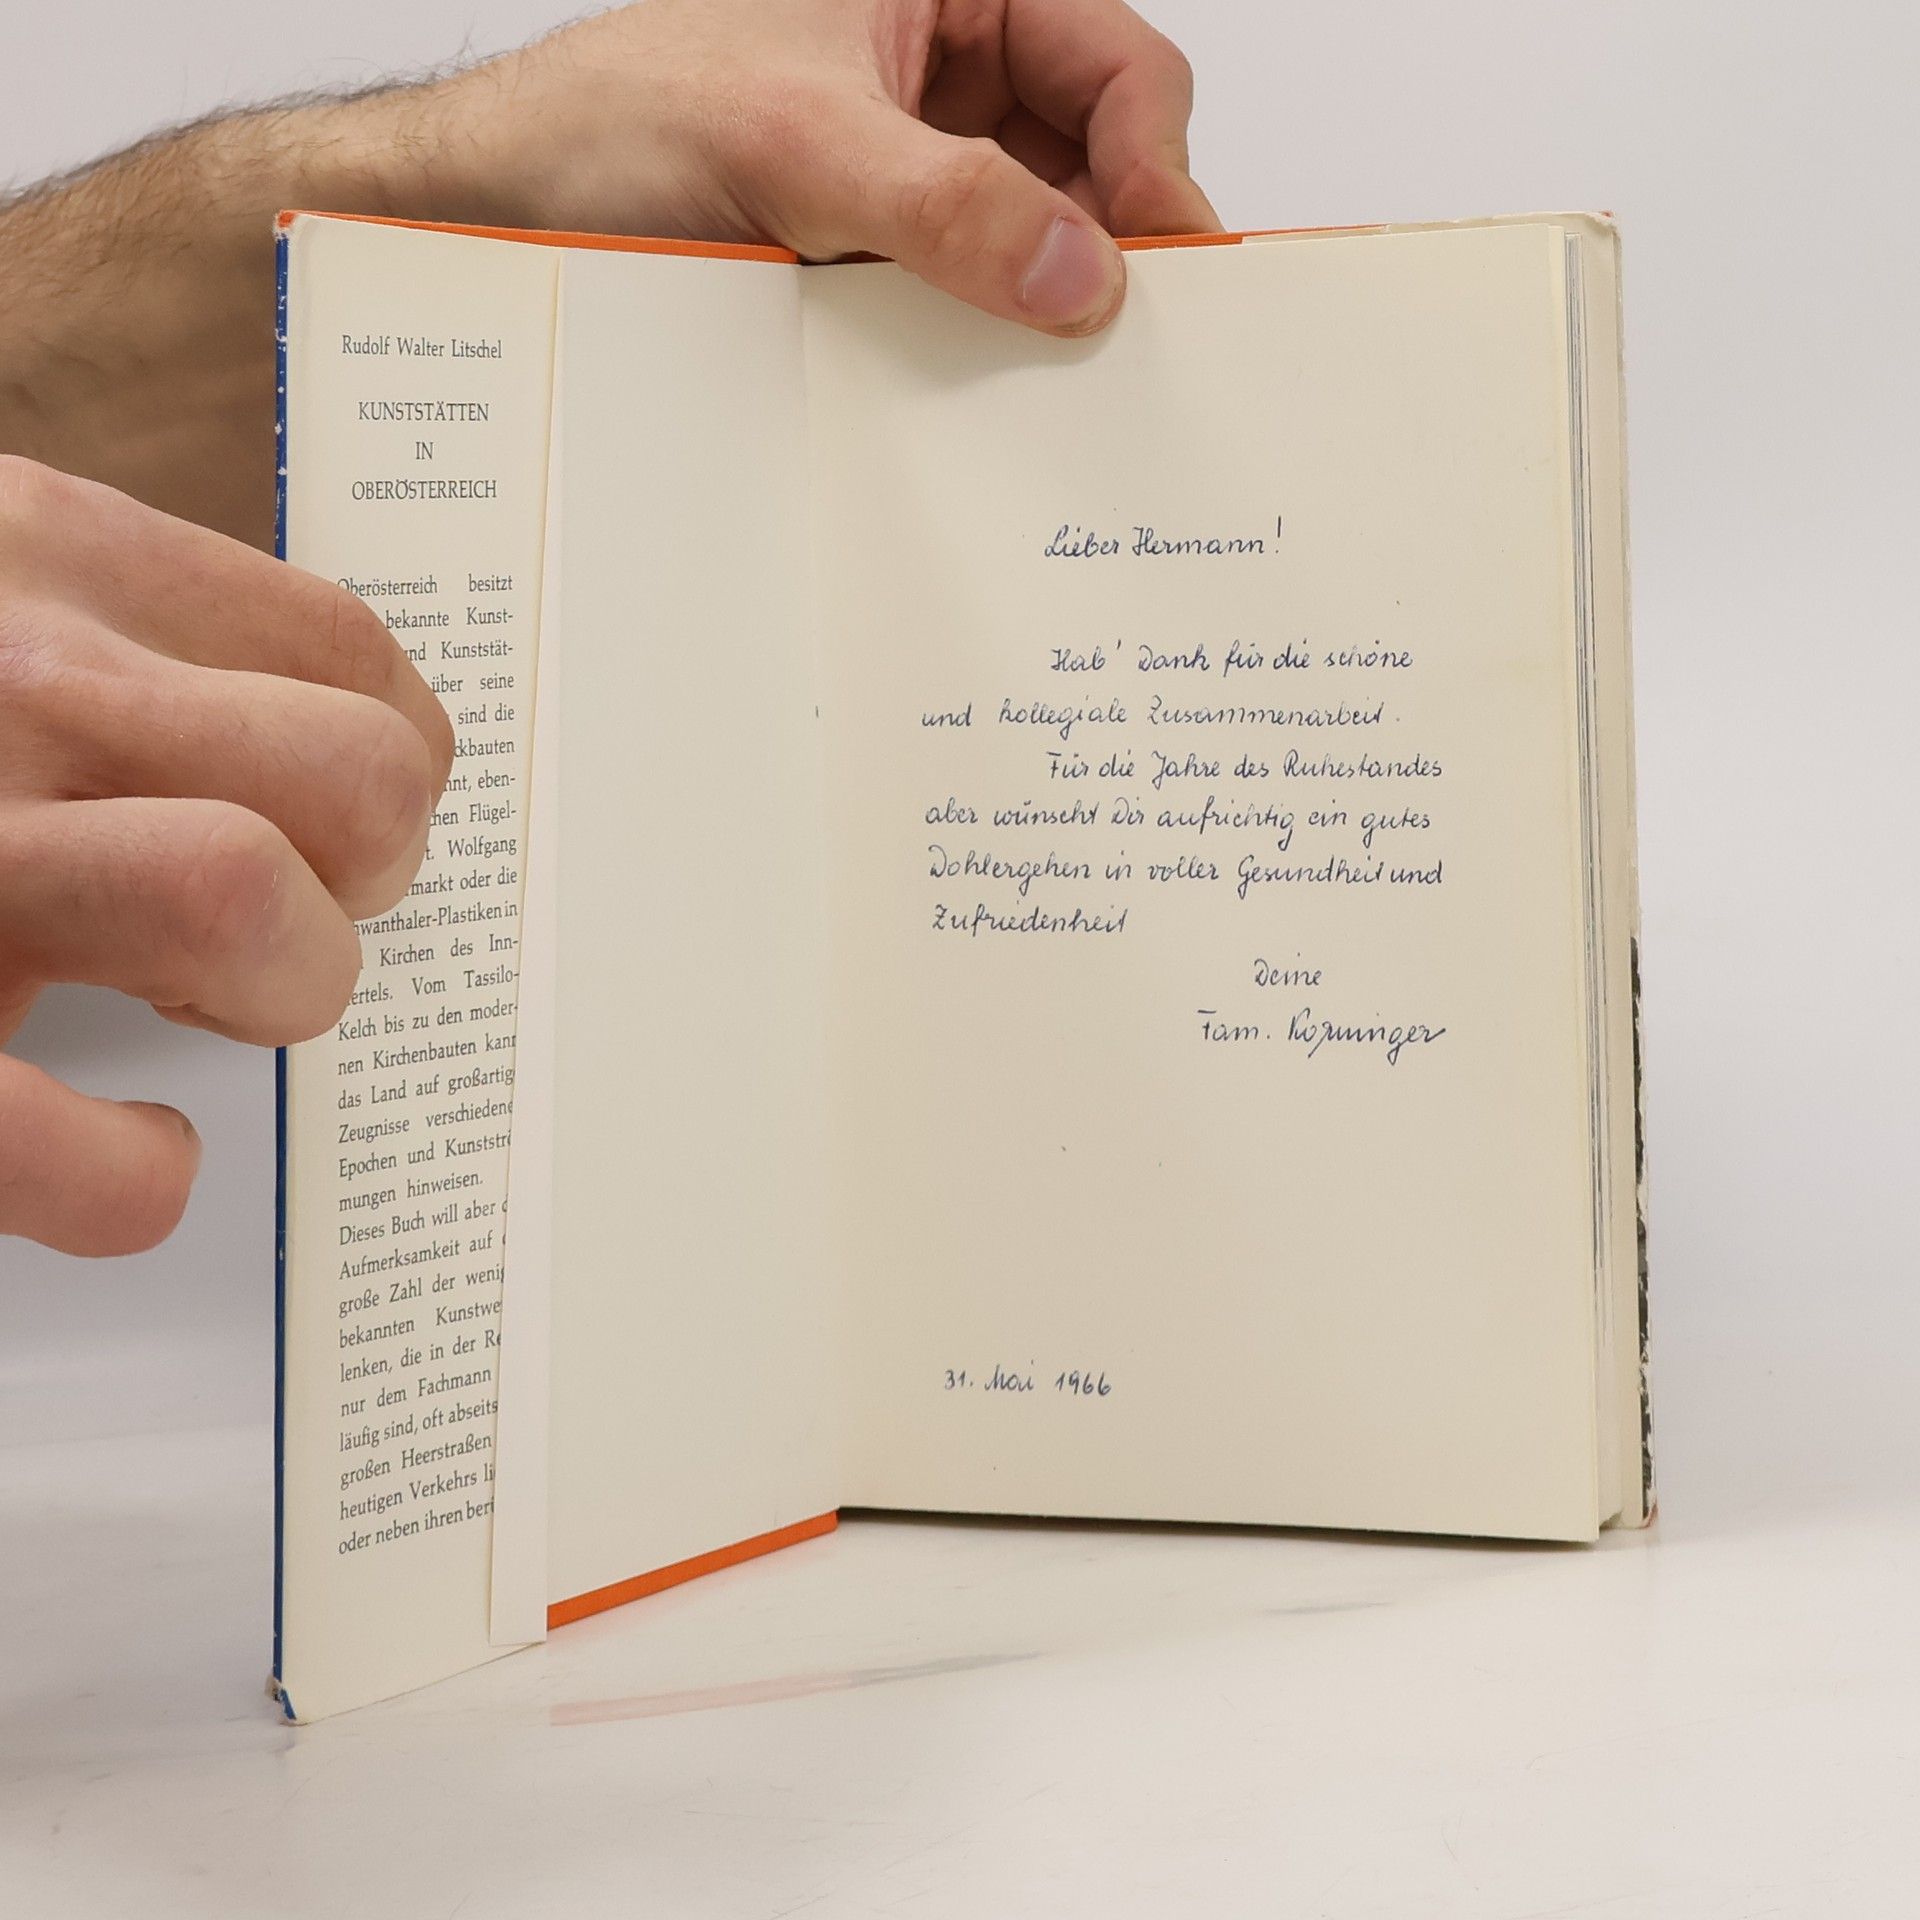 Rudolf Walter Litschel
KUNSTSTÄTTEN
IN
OBERÖSTERREICH
Oberösterreich besitzt
bekannte Kunst-
und Kunststät-
über seine
sind die
ckbauten
nnt, eben-
chen Flügel-
t. Wolfgang
markt oder die
hwanthaler-Plastiken in
Kirchen des Inn-
iertels. Vom Tassilo-
Kelch bis zu den moder-
nen Kirchenbauten kann
das Land auf großartig
Zeugnisse verschieden
Epochen und Kunststr
mungen hinweisen.
Dieses Buch will aber
Aufmerksamkeit auf
große Zahl der wenig
bekannten Kunstwe
lenken, die in der Re
nur dem Fachmann
läufig sind, oft abseits
großen Heerstraßen
heutigen Verkehrs li
oder neben ihren beri
Lieber Hermann!
Hab' Dank für die schöne
und kollegiale Zusammenarbeit.
Für die Jahre des Ruhestandes
aber wünscht Dir aufrichtig ein gutes
Wohlergehen in voller Gesundheit und
Zufriedenheit
Deine
Fam.
31. Mai 1966